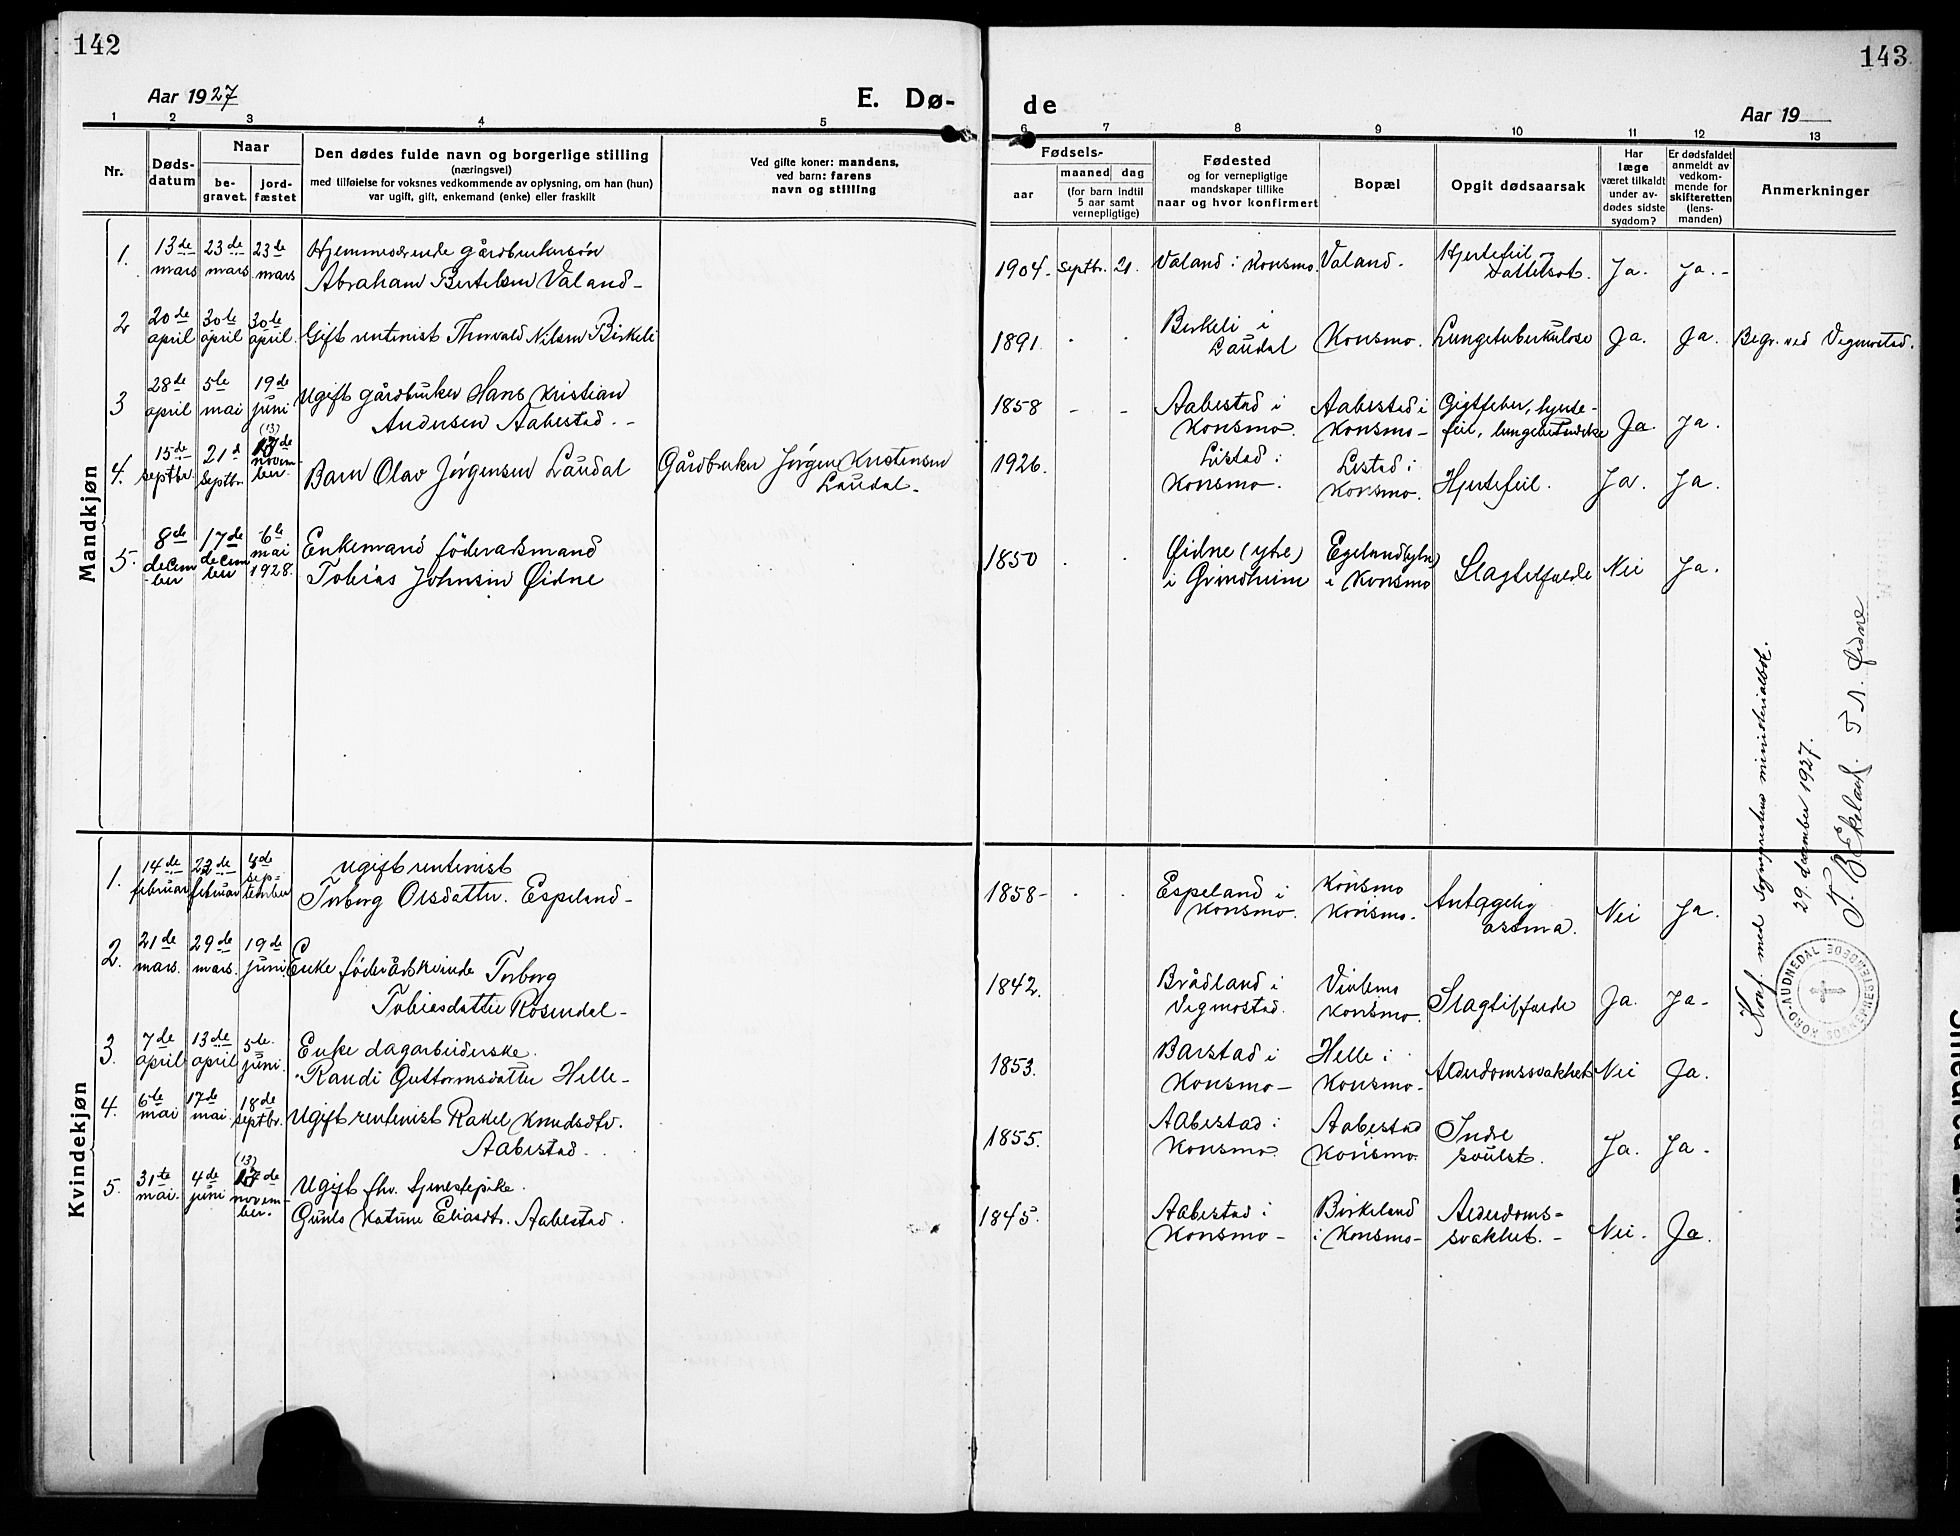 142
143
Aar 1927
E. Dø-
de
Aar 19
1 2 3 4 5 6 7 8 9 10 11 12 13
Nr.
Døds-
datum
Naar
be-
gravet.
jord-
fæstet
Den dødes fulde navn og borgerlige stilling
(næringsvei)
med tilføielse for voksnes vedkommende av oplysning, om han (hun)
var ugift, gift, enkemand (enke) eller fraskilt
Ved gifte koner: mandens,
ved barn: farens
navn og stilling
Fødsels-
aar
maaned dag
(for barn indtil
5 aar samt
vernepligtige)
Fødested
og for vernepligtige
mandskaper tillike
naar og hvor konfirmert
Bopæl
Opgit dødsaarsak
Har
læge
været tilkaldt
under av-
dødes sidste
sygdom?
Er dødsfaldet
anmeldt av
vedkom-
mende for
skifteretten
(lens-
manden)
Anmerkninger
Mandkjøn
1. 13de mars 23de mars 23de mars
Hjemmeværende gårdbrukersøn
Abraham Bertelsen Valand -
1904 - septbr. 21. Valand i Konsmo. Valand. Hjertefeil og
Ja. Ja. -
2 20de april 30te april 30te april.
Gift rentenist Thorvald Nilsen Birkeli
1891. Birkeli i
Laudal Konsmo. Lungetuberkulose Ja. Ja. Begr. ved Vegmostad.
3 28de april 5te mai 19de juni
Ugift gårdbruker Hans Kristian
Andersen Aabestad. -
1858 - - Aabestad i
Konsmo. Aabestad i
Konsmo - Gigtfeber, hjerte-
feil, lungebetendelse Ja. Ja.
4. 15de septbr. 21d septbr. (13) 17de novem-
ber.
Barn Olav Jörgensen Laudal
Gårdbruker Jörgen Kristensen
Laudal -
1926. Listad i
Konsmo. Listad i
Konsmo. Hjertefeil. Ja. Ja.
5. 8de decem-
ber 17de decem-
ber 6te mai
1928.
Enkemand föderådsmand
Tobias Johnsen Øidne
1850 Øidne (ytre)
i Grindheim
i Konsmo Slagtilfælde Nei Ja.
Kvindekjøn
1. 14de februar 22de februar sep-
tember
Ugift rentenist
Torborg Olsdatter. Espeland -
1858 - Espeland i
Konsmo. Konsmo
Konsmo. Antagelig
astma. Nei Ja.
2. 21de mars. 29de mars. 19de juni
Enke föderådskvinde Torborg
Tobiasdatter Rosendal -
1842. Brådland i
Vegmostad. Vivlemo
Konsmo. Slagtilfælde Ja. Ja -
3. 7de april 13de april 5te juni.
Enke dagarbeiderske.
Randi Guttormsdatter Helle -
1853. Barstad i
Konsmo - Helle i
Konsmo - Alderdomssvakhet Nei Ja.
4. 6te mai 17de mai. 18de septbr.
Ugift rentenist Rakel Knudsdtr.
Aabestad.
1855. Aabestad i
Konsmo. Aabestad
Konsmo. Indre
svulst. Ja. Ja -
5. 31te mai. 4de juni (13) 17de novem-
ber.
Ugift fhv. tjenestepike.
Gunlo Katrine Eliasdtr. Aabestad.
1845. Aabestad i
Konsmo - Birkeland
i Konsmo - Alderdoms-
svakhet. - Nei. Ja.
Konf. med sogneprestens ministerialbok.
29. december 1927.
T. B. Ekeland. T. A. Øidne
NORD-AUDNEDAL SOGNEPRESTEMBEDE